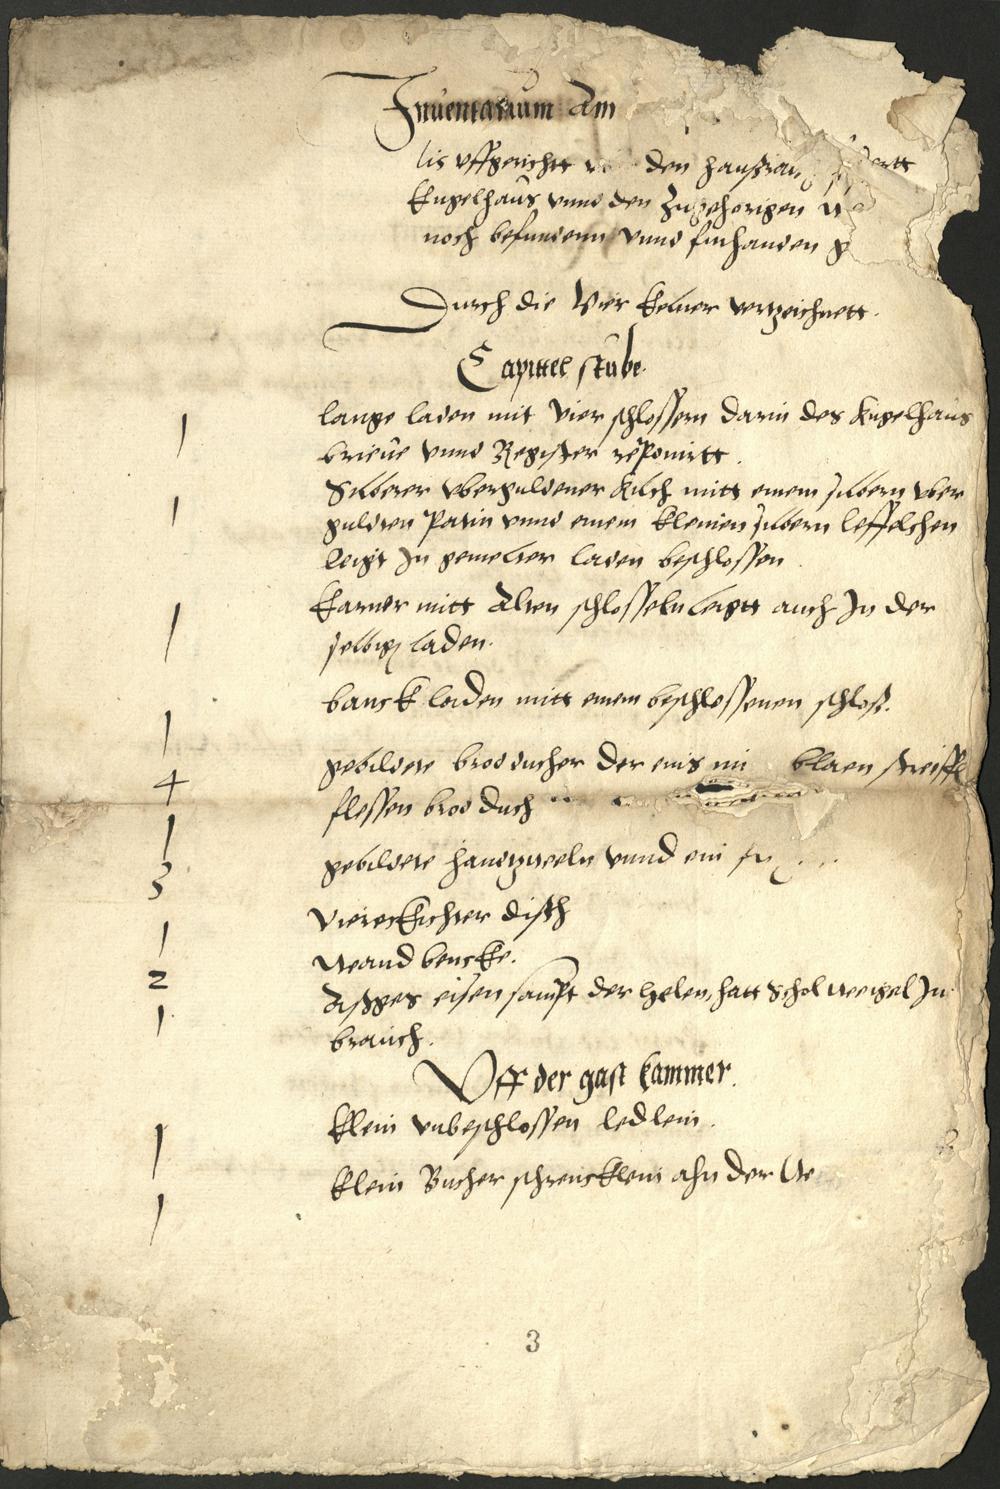 Inuentarium Am
lis vffgericht den haußrau
Kugelhaus vnnd den Zugehorigen
noch befundenn vnnd furhanden
Durch die Vier Kelner vertzeichnett.
Capittel stube
1 lange laden mit vier schlossern darin des Kugelhaus
brieue vnnd Register reponirtt.
1 Silberer vberguldener Kilch mitt einem silbern vber
guldten Patin vnnd einem kleinen silbern leffelchen
leigt In gemelter laden beschlossen
1 Karner mitt Alten schlosseln leigtt auch In der
selbig laden.
1 banck laden mitt einem beschlossenen schloß.
4 gebildete brod ducher der eins mi blaen streiffl
1 flessen brod duch
3 gebildete handtzweeln vnnd ein
1 Viereckichter disch
2 Wand bencke.
1 eisen sampt der helen, hatt Schol weigel In
brauch.
Vff der gast kammer.
1 klein vnbeschlossen ledlein.
1 klein Bucher schrencklein ahn der We
3